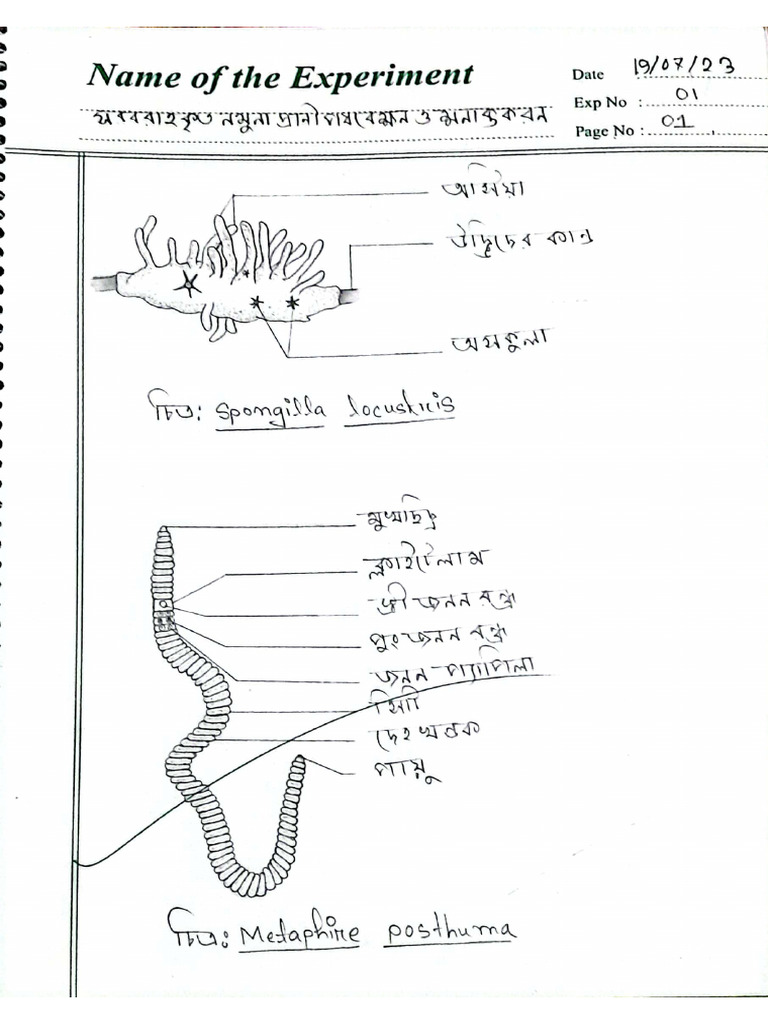 Name of the Experiment
Date 19/07/23
সরবরাহকৃত নমুনা প্রানী পর্যবেক্ষন ও শনাক্তকরন
Exp No : 01
Page No : 01
অসিয়া
উদ্ভিদের কান্ড
অসকুলা
চিত্র: Spongilla locustris
মুখছিদ্র
ক্লাইটেলাম
স্ত্রী জনন রন্ধ্র
পুং জনন রন্ধ্র
জনন প্যাপিলা
সিটি
দেহখন্ডক
পায়ু
চিত্র: Metaphire posthuma